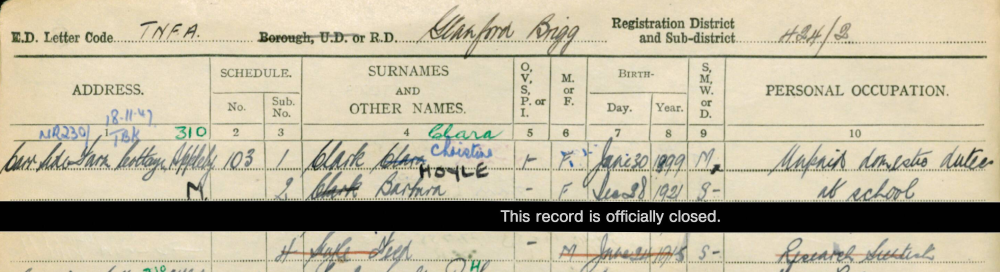 E.D. Letter Code TNFA. Borough, U.D. or R.D. Glanford Brigg Registration District and Sub-district 424/2
ADDRESS. SCHEDULE. SURNAMES AND OTHER NAMES. O, V, S, P. or I. M. or F. BIRTH- S, M, W, or D. PERSONAL OCCUPATION.
No. Sub. No. Day. Year.
18-11-47
NR230/ TBK 310 1 2 3 4 Clara 5 6 7 8 9 10
Carr Side Farm Cottage Appleby 103 1 Clark Clara Christine - F June 30 1899 M Unpaid domestic duties
HOYLE
M. 2 Clark Barbara - F Dec 28 1921 S- at school
This record is officially closed.
4 - M June 24 1915 S- Research